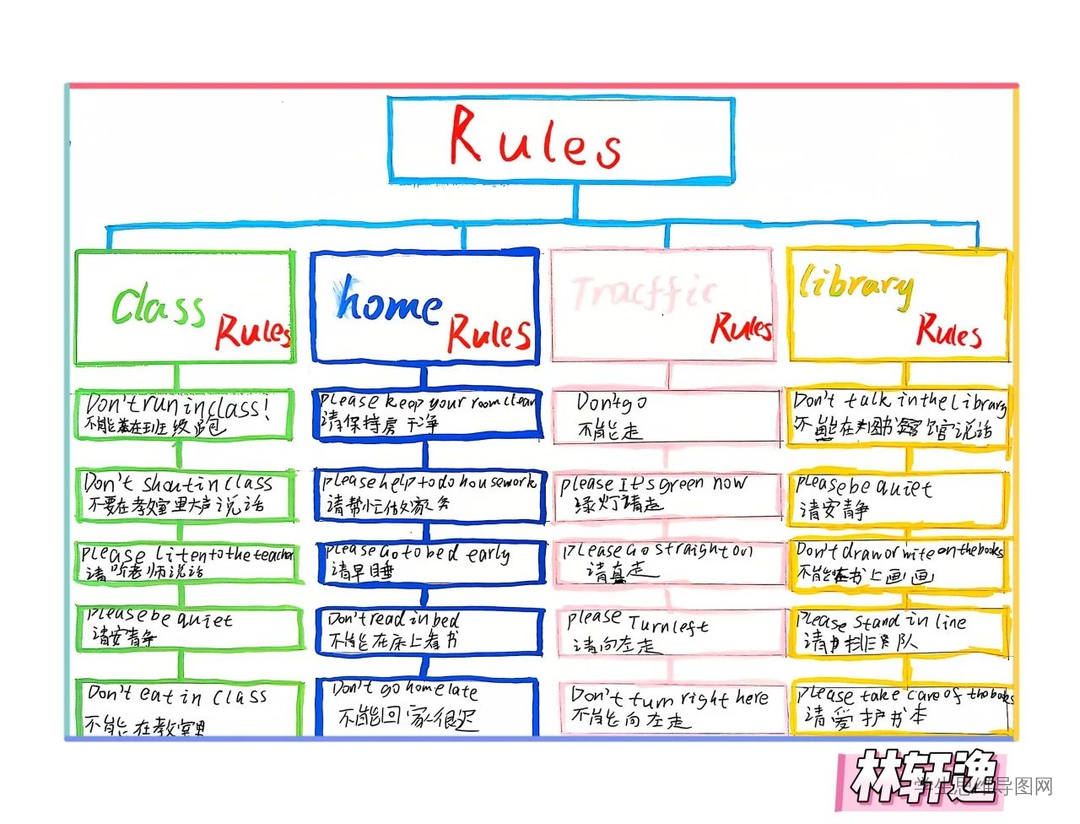 Rules
Class
Rules
home
Rules
Tracffic
Rules
library
Rules
Don't run in class!
不能在班级跑
Don't shout in class
不要在教室里大声说话
please Listen to the teacher
请听老师说话
Please be quiet
请安静
Don't eat in class
不能在教室里
please keep your room clean
请保持房干净
please help to do housework
请帮忙做家务
please Go to bed early
请早睡
Don't read in bed
不能在床上看书
Don't go home late
不能回家很迟
Don't go
不能走
please It's green now
绿灯请走
please Go straight on
请直走
please Turn left
请向左走
Don't turn right here
不能向左走
Don't talk in the library
不能在图书官说话
please be quiet
请安静
Don't draw or write on the books
不能在书上画画
Please Stand in line
请排队
please take care of the books
请爱护书本
林轩逸
学生思维导图网